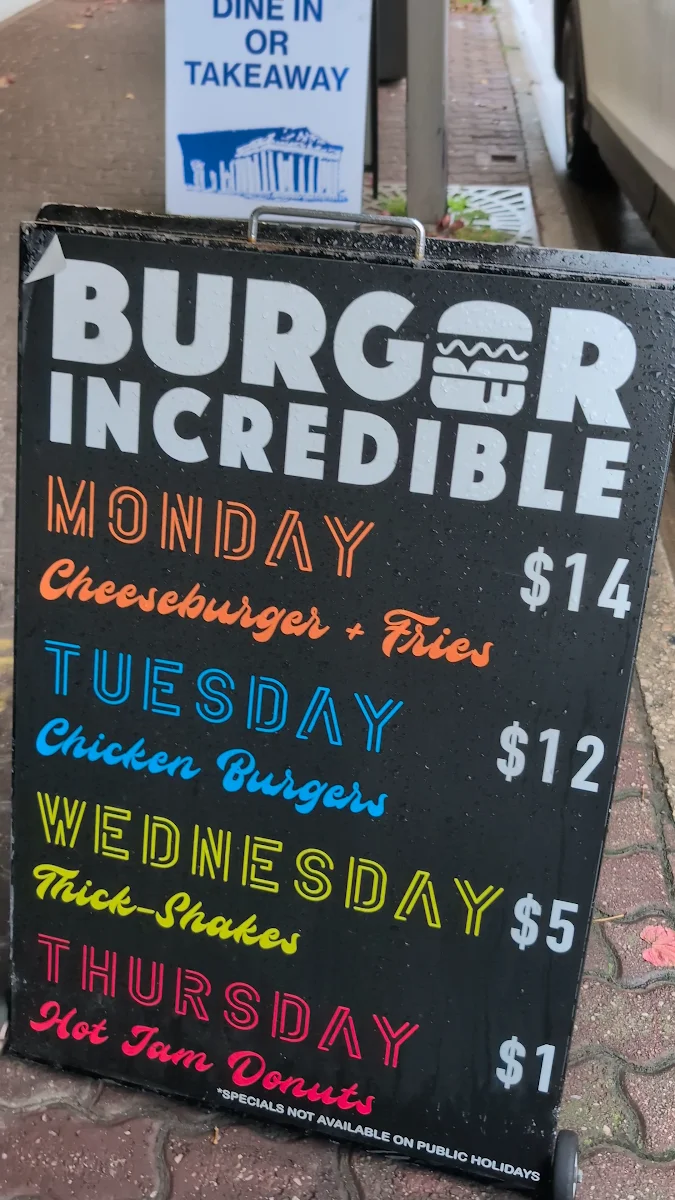 DINE IN
OR
TAKEAWAY
BURGER
INCREDIBLE
MONDAY
$14
Cheeseburger + Fries
TUESDAY
$12
Chicken Burgers
WEDNESDAY
$5
Thick-Shakes
THURSDAY
$1
Hot Jam Donuts
*SPECIALS NOT AVAILABLE ON PUBLIC HOLIDAYS